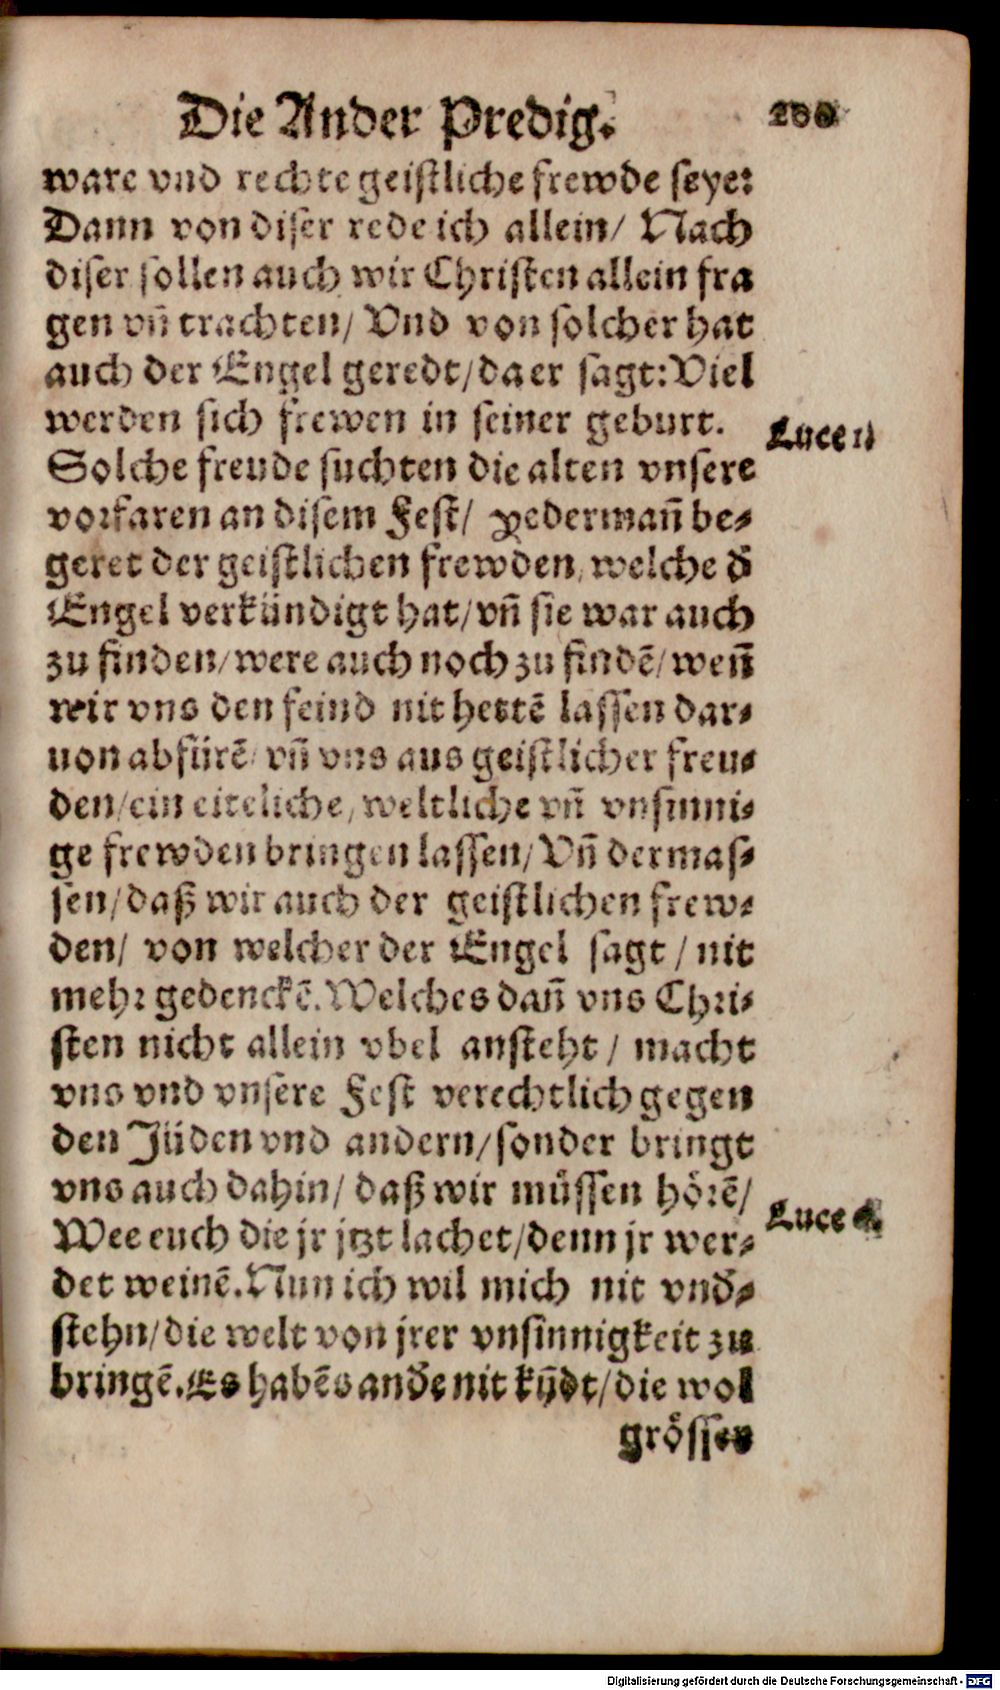 Die Ander Predig.
ware vnd rechte geistliche frewde seye:
Dann von diser rede ich allein/ Nach
diser sollen auch wir Christen allein fra
gen vñ trachten/ Vnd von solcher hat
auch der Engel geredt/ da er sagt: Viel
werden sich frewen in seiner geburt.
Luce
Solche freude suchten die alten vnsere
vorfaren an disem Fest/ yederman̄ be⸗
geret der geistlichen frewden, welche d̄
Engel verkündigt hat/ vñ sie war auch
zu finden/ were auch noch zu findē/ wen̄
wir vns den feind nit hettē lassen dar⸗
uon abfürē/ vñ vns aus geistlicher freu⸗
den/ ein eiteliche, weltliche vñ vnsinni⸗
ge frewden bringen lassen/ Vñ dermas⸗
sen/ daß wir auch der geistlichen frew⸗
den/ von welcher der Engel sagt/ nit
mehr gedenckē. Welches dan̄ vns Chri⸗
sten nicht allein vbel ansteht/ macht
vns vnd vnsere Fest verechtlich gegen
den Jüden vnd andern/ sonder bringt
vns auch dahin/ daß wir müssen hörē/
Luce
Wee euch die jr jtzt lachet/ denn jr wer⸗
det weinē. Nun ich wil mich nit vnd̄⸗
stehn/ die welt von jrer vnsinnigkeit zu
bringē. Es habēs and̄e nit kȳdt/ die wol
grösser
Digitalisierung gefördert durch die Deutsche Forschungsgemeinschaft - DFG